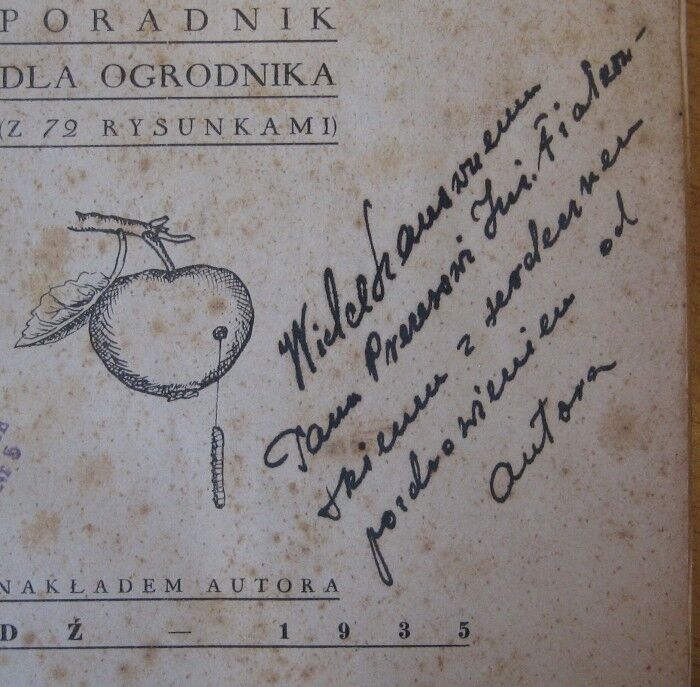 PORADNIK
DLA OGRODNIKA
(Z 72 RYSUNKAMI)
Wielceszanownemu
Panu Prezesowi Inż. Fiałkow-
skiemu z serdecznem
pozdrowieniem od
autora
NAKŁADEM AUTORA
DŹ — 1935